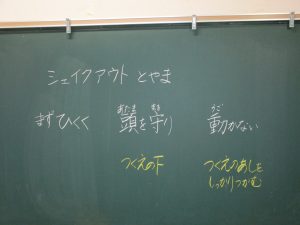 シェイクアウト とやま
まずひくく 頭を守り 動かない
あたま まも うご
つくえの下 つくえのあしを
しっかりつかむ